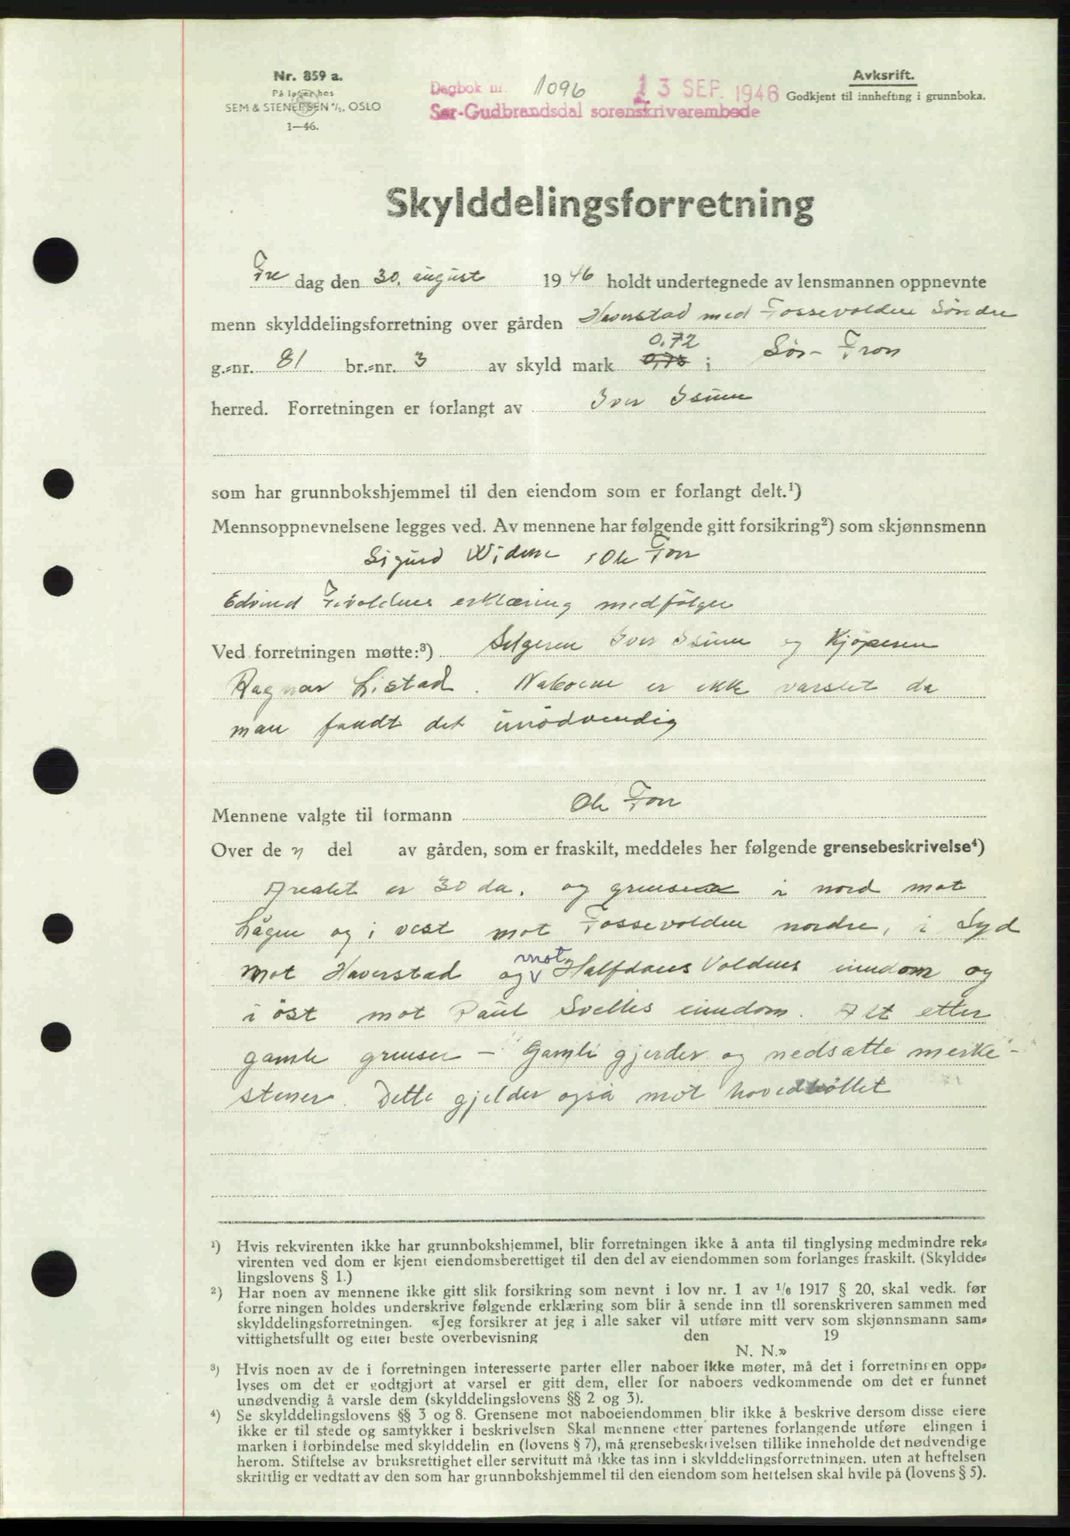 Nr. 859 a.
På lager hos
SEM & STENERSEN A/S, OSLO
1—46.
Dagbok nr. 1096 13 SEP. 1946
Sør-Gudbrandsdal sorenskriverembede
Avksrift.
Godkjent til innhefting i grunnboka.
Skylddelingsforretning
Fre dag den 30. august 1946 holdt undertegnede av lensmannen oppnevnte
menn skylddelingsforretning over gården Haverstad med Fossevolden Søndre
g.-nr. 81 br.-nr. 3 av skyld mark 0,72 i Sør-Fron
herred. Forretningen er forlangt av Iver Isum
som har grunnbokshjemmel til den eiendom som er forlangt delt.¹)
Mennsoppnevnelsene legges ved. Av mennene har følgende gitt forsikring²) som skjønnsmenn
Sigurd Widme, Ole Fon
Edvind erklæring medfølger
Ved forretningen møtte:³) Selgeren Iver Isum og Kjøperen
Ragnar Listad. Naboene er ikke varslet da
man fandt det unødvendig
Mennene valgte til formann Ole Fon
Over de n del av gården, som er fraskilt, meddeles her følgende grensebeskrivelse⁴)
Arealet er 30 da. og grenser i nord mot
Lågen og i vest mot Fossevolden nordre, i Syd
mot Haverstad og mot Halfdans Voldens eiendom og
i öst mot Paul Svelles eiendom. Alt etter
gamle grenser — Gamle gjerder og nedsatte merke-
stener. Dette gjelder også mot hovedbøllet
¹) Hvis rekvirenten ikke har grunnbokshjemmel, blir forretningen ikke å anta til tinglysing medmindre rek-
virenten ved dom er kjent eiendomsberettiget til den del av eiendommen som forlanges fraskilt. (Skyldde-
lingslovens § 1.)
²) Har noen av mennene ikke gitt slik forsikring som nevnt i lov nr. 1 av 1/6 1917 § 20, skal vedk. før
forretningen holdes underskrive følgende erklæring som blir å sende inn til sorenskriveren sammen med
skylddelingsforretningen. «Jeg forsikrer at jeg i alle saker vil utføre mitt verv som skjønnsmann sam-
vittighetsfullt og etter beste overbevisning den 19
N. N.»
³) Hvis noen av de i forretningen interesserte parter eller naboer ikke møter, må det i forretningen opp-
lyses om det er godtgjort at varsel er gitt dem, eller for naboers vedkommende om det er funnet
unødvendig å varsle dem (skylddelingslovens §§ 2 og 3).
⁴) Se skylddelingslovens §§ 3 og 8. Grensene mot naboeiendommen blir ikke å beskrive dersom disse eiere
ikke er til stede og samtykker i beskrivelsen Skal mennene etter partenes forlangende utføre elingen i
marken i forbindelse med skylddelin en (lovens § 7), må grensebeskrivelsen tillike inneholde det nødvendige
herom. Stiftelse av bruksrettighet eller servitutt må ikke tas inn i skylddelingsforretningen, uten at heftelsen
skriftlig er vedtatt av den som har grunnbokshjemmel til den eiendom som heftelsen skal hvile på (lovens § 5).